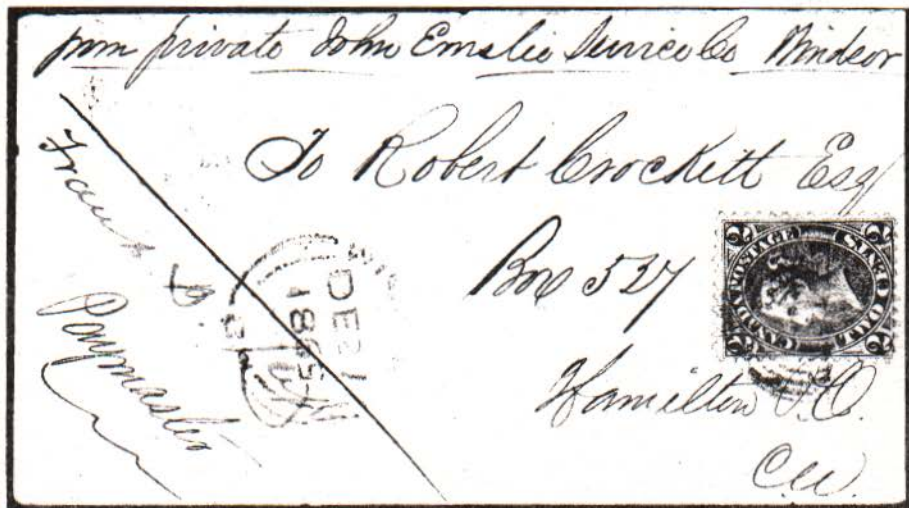 from private John Emslie Service Co Windsor
To Robert Crockett Esq
Box 527
Hamilton P.O.
C.W.
Paymaster
DE 1
1865
CANADA POSTAGE
TWO CENTS
2 2 2 2